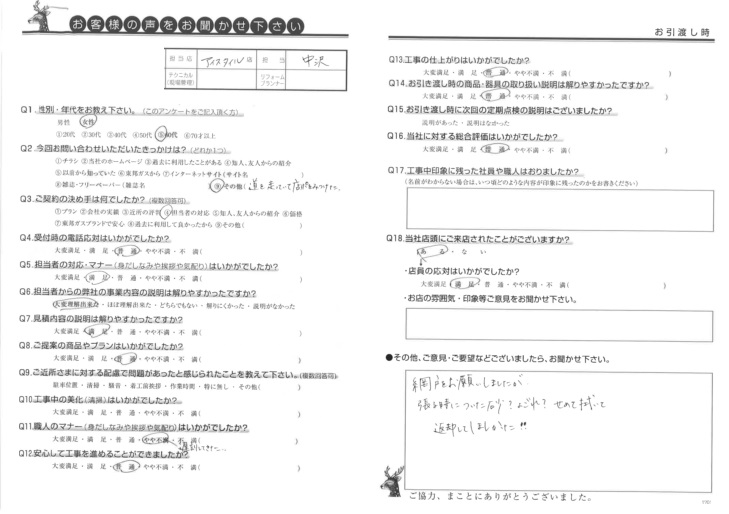 お客様の声をお聞かせ下さい
お引渡し時
担当店 アイスタイル 店 担当 中沢
テクニカル(現場管理) リフォームプランナー
Q1.性別・年代をお教え下さい。(このアンケートをご記入頂く方)
男性 女性
①20代 ②30代 ③40代 ④50代 ⑤60代 ⑥70才以上
Q2.今回お問い合わせいただいたきっかけは?(どれか1つ)
①チラシ ②当社のホームページ ③過去に利用したことがある ④知人、友人からの紹介
⑤以前から知っていた ⑥東邦ガスから ⑦インターネットサイト(サイト名 )
⑧雑誌・フリーペーパー(雑誌名 ) ⑨その他( 道を走っていて店頭をみつけた。
Q3.ご契約の決め手は何でしたか?(複数回答可)
①プラン ②会社の実績 ③近所の評判 ④担当者の対応 ⑤知人、友人からの紹介 ⑥価格
⑦東邦ガスブランドで安心 ⑧過去に利用して良かったから ⑨その他( )
Q4.受付時の電話応対はいかがでしたか?
大変満足・満 足・普 通・やや不満・不 満( )
Q5.担当者の対応・マナー(身だしなみや挨拶や気配り)はいかがでしたか?
大変満足・満 足・普 通・やや不満・不 満( )
Q6.担当者からの弊社の事業内容の説明は解りやすかったですか?
大変理解出来た・ほぼ理解出来た・どちらでもない・解りにくかった・説明がなかった
Q7.見積内容の説明は解りやすかったですか?
大変満足・満 足・普 通・やや不満・不 満( )
Q8.ご提案の商品やプランはいかがでしたか?
大変満足・満 足・普 通・やや不満・不 満( )
Q9.ご近所さまに対する配慮で問題があったと感じられたことを教えて下さい。(複数回答可)
駐車位置・清掃・騒音・着工前挨拶・作業時間・特に無し・その他( )
Q10.工事中の美化(清掃)はいかがでしたか?
大変満足・満 足・普 通・やや不満・不 満( )
Q11.職人のマナー(身だしなみや挨拶や気配り)はいかがでしたか?
大変満足・満 足・普 通・やや不満・不 満( 遅刻してきた… )
Q12.安心して工事を進めることができましたか?
大変満足・満 足・普 通・やや不満・不 満( )
Q13.工事の仕上がりはいかがでしたか?
大変満足・満 足・普 通・やや不満・不 満( )
Q14.お引き渡し時の商品・器具の取り扱い説明は解りやすかったですか?
大変満足・満 足・普 通・やや不満・不 満( )
Q15.お引き渡し時に次回の定期点検の説明はございましたか?
説明があった・説明はなかった
Q16.当社に対する総合評価はいかがでしたか?
大変満足・満 足・普 通・やや不満・不 満( )
Q17.工事中印象に残った社員や職人はおりましたか?
(名前がわからない場合は、いつ頃どのような内容が印象に残ったのかをお書きください)
Q18.当社店頭にご来店されたことがございますか?
ある・な い
・店員の応対はいかがでしたか?
大変満足・満 足・普 通・やや不満・不 満( )
・お店の雰囲気・印象等ご意見をお聞かせ下さい。
●その他、ご意見・ご要望などございましたら、お聞かせ下さい。
網戸をお願いしましたが
張る時についた砂?よごれ?せめて拭いて
返却してほしかった!!
ご協力、まことにありがとうございました。